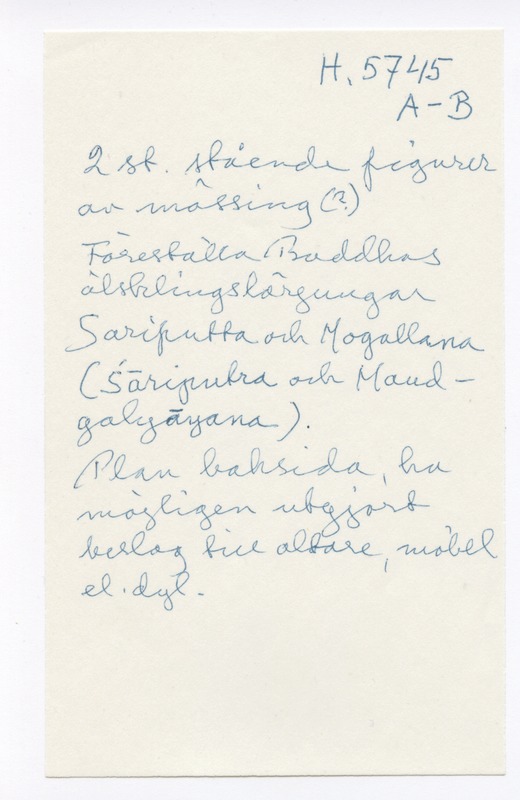 H. 5745
A-B
2 st. stående figurer
av mässing (?)
Föreställa Buddhas
älsklingslärjungar
Sariputta och Mogallana
(Śāriputra och Maud-
galyāyana).
Plan baksida, ha
möjligen utgjort
beslag till altare, möbel
el. dyl.